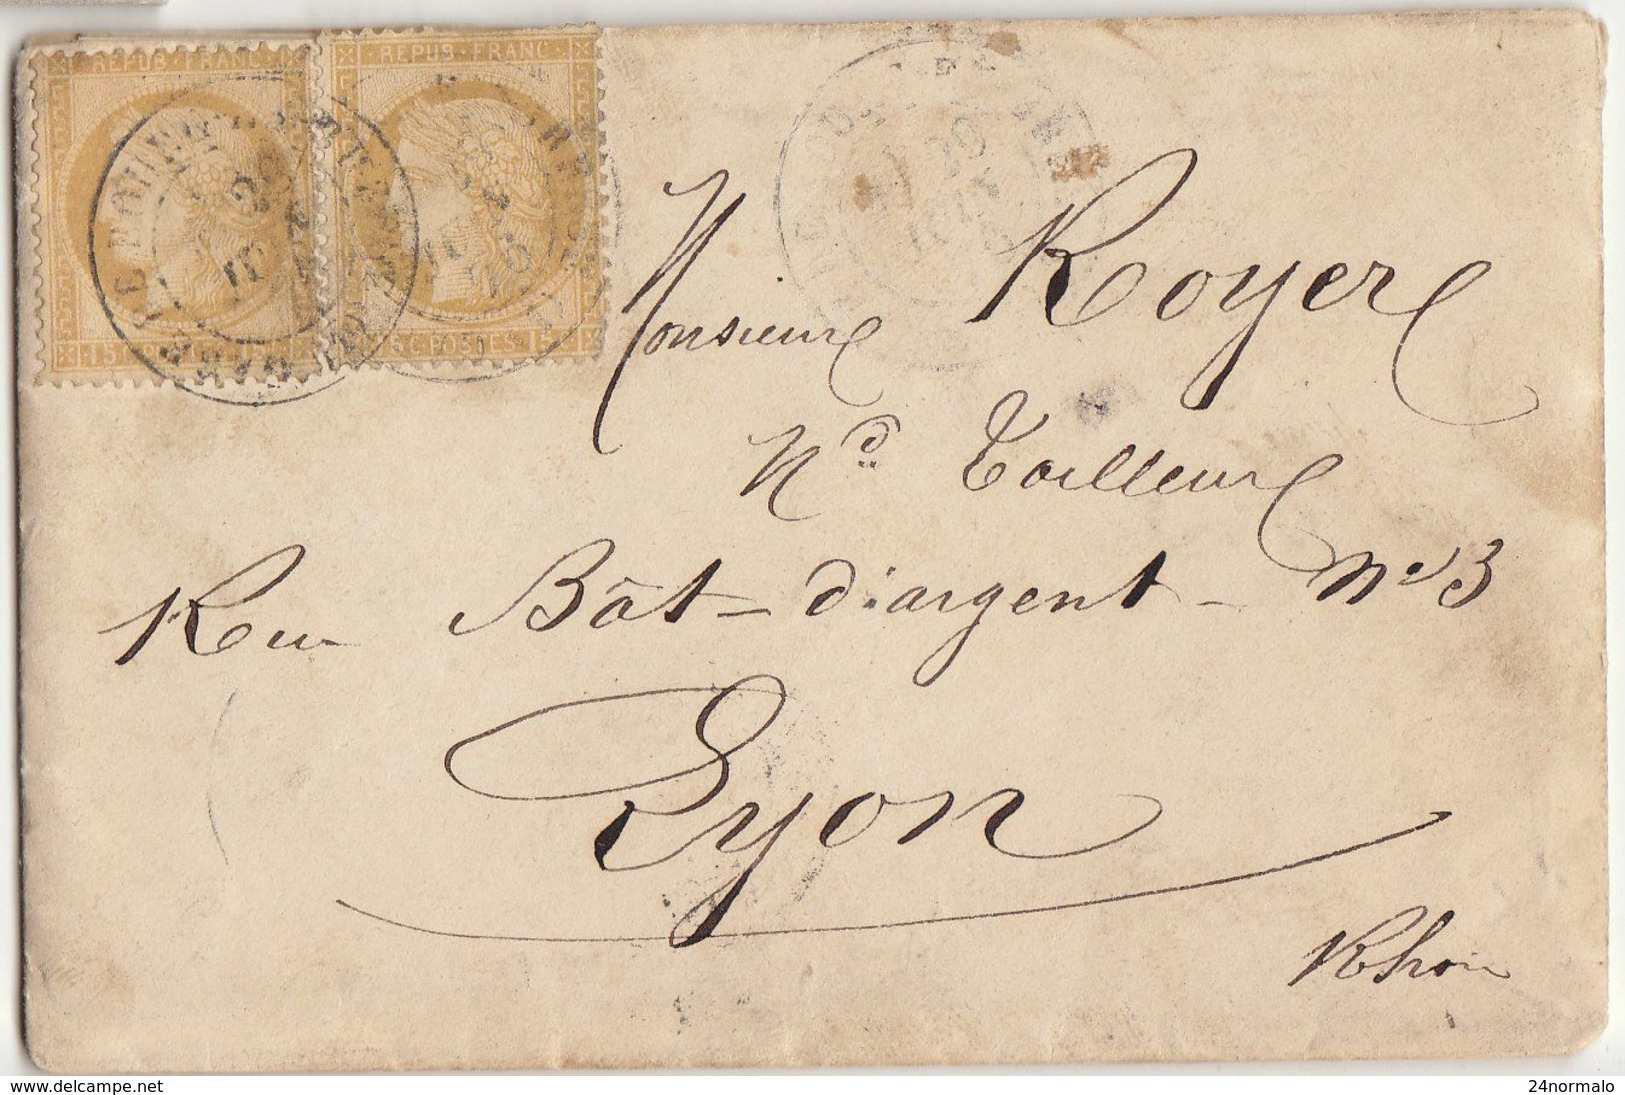 REPUB · FRANC
REPUB · FRANC
15 C POSTES 15
15 C POSTES 15
Monsieur Royer
Md Tailleur
Rue Bât-d'argent - No 3
Lyon
Rhône
www.delcampe.net
24normalo